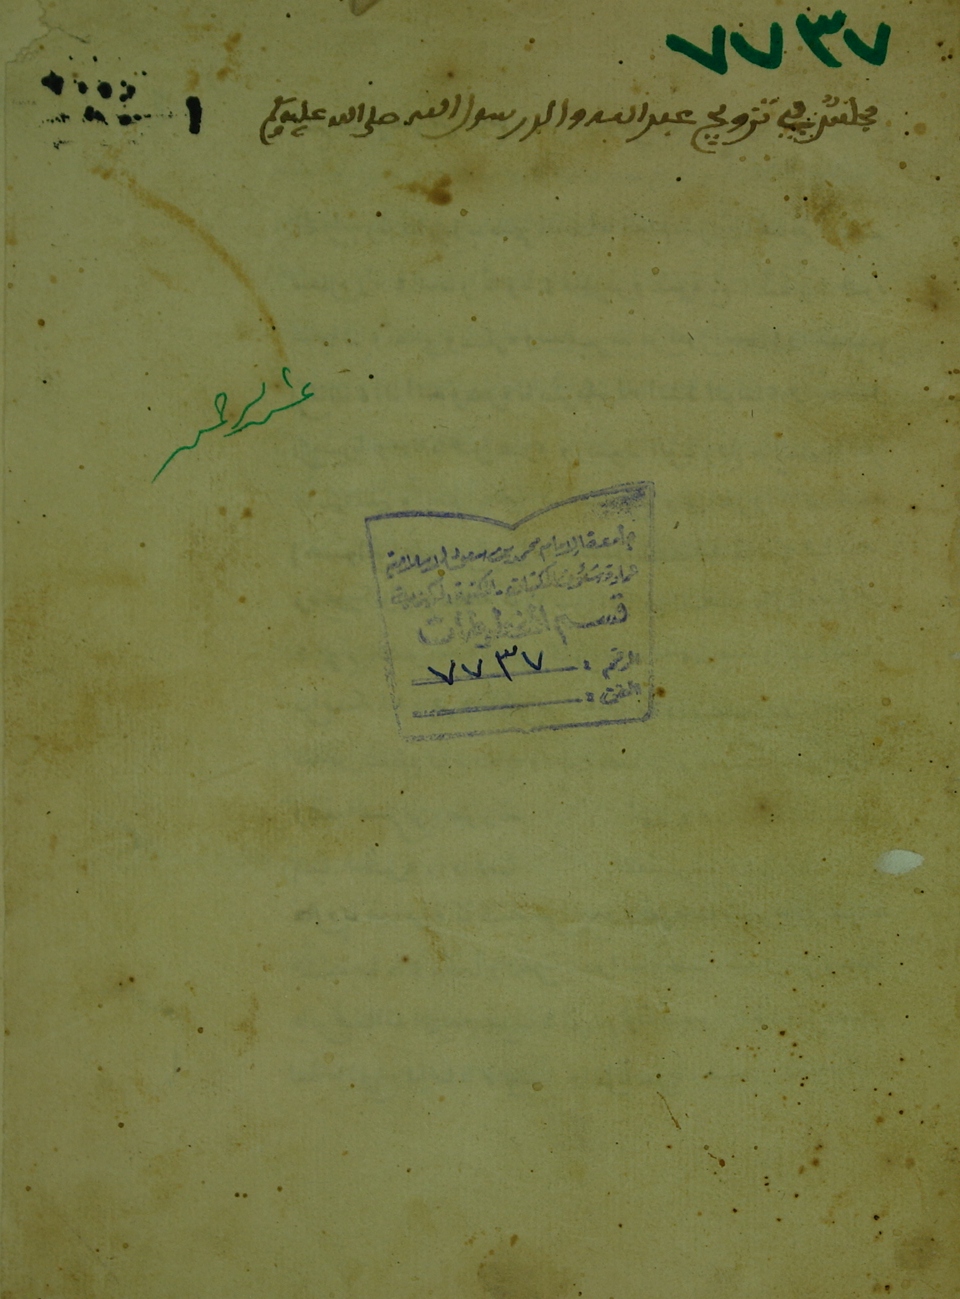 ٧٧٣٧
مجلس في تزويج عبد الله والد رسول الله صلى الله عليه وسلم
١
جامعة الإمام محمد بن سعود الإسلامية
عمادة شئون المكتبات - المكتبة المركزية
قسم المخطوطات
الرقم : ٧٧٣٧
الفن :